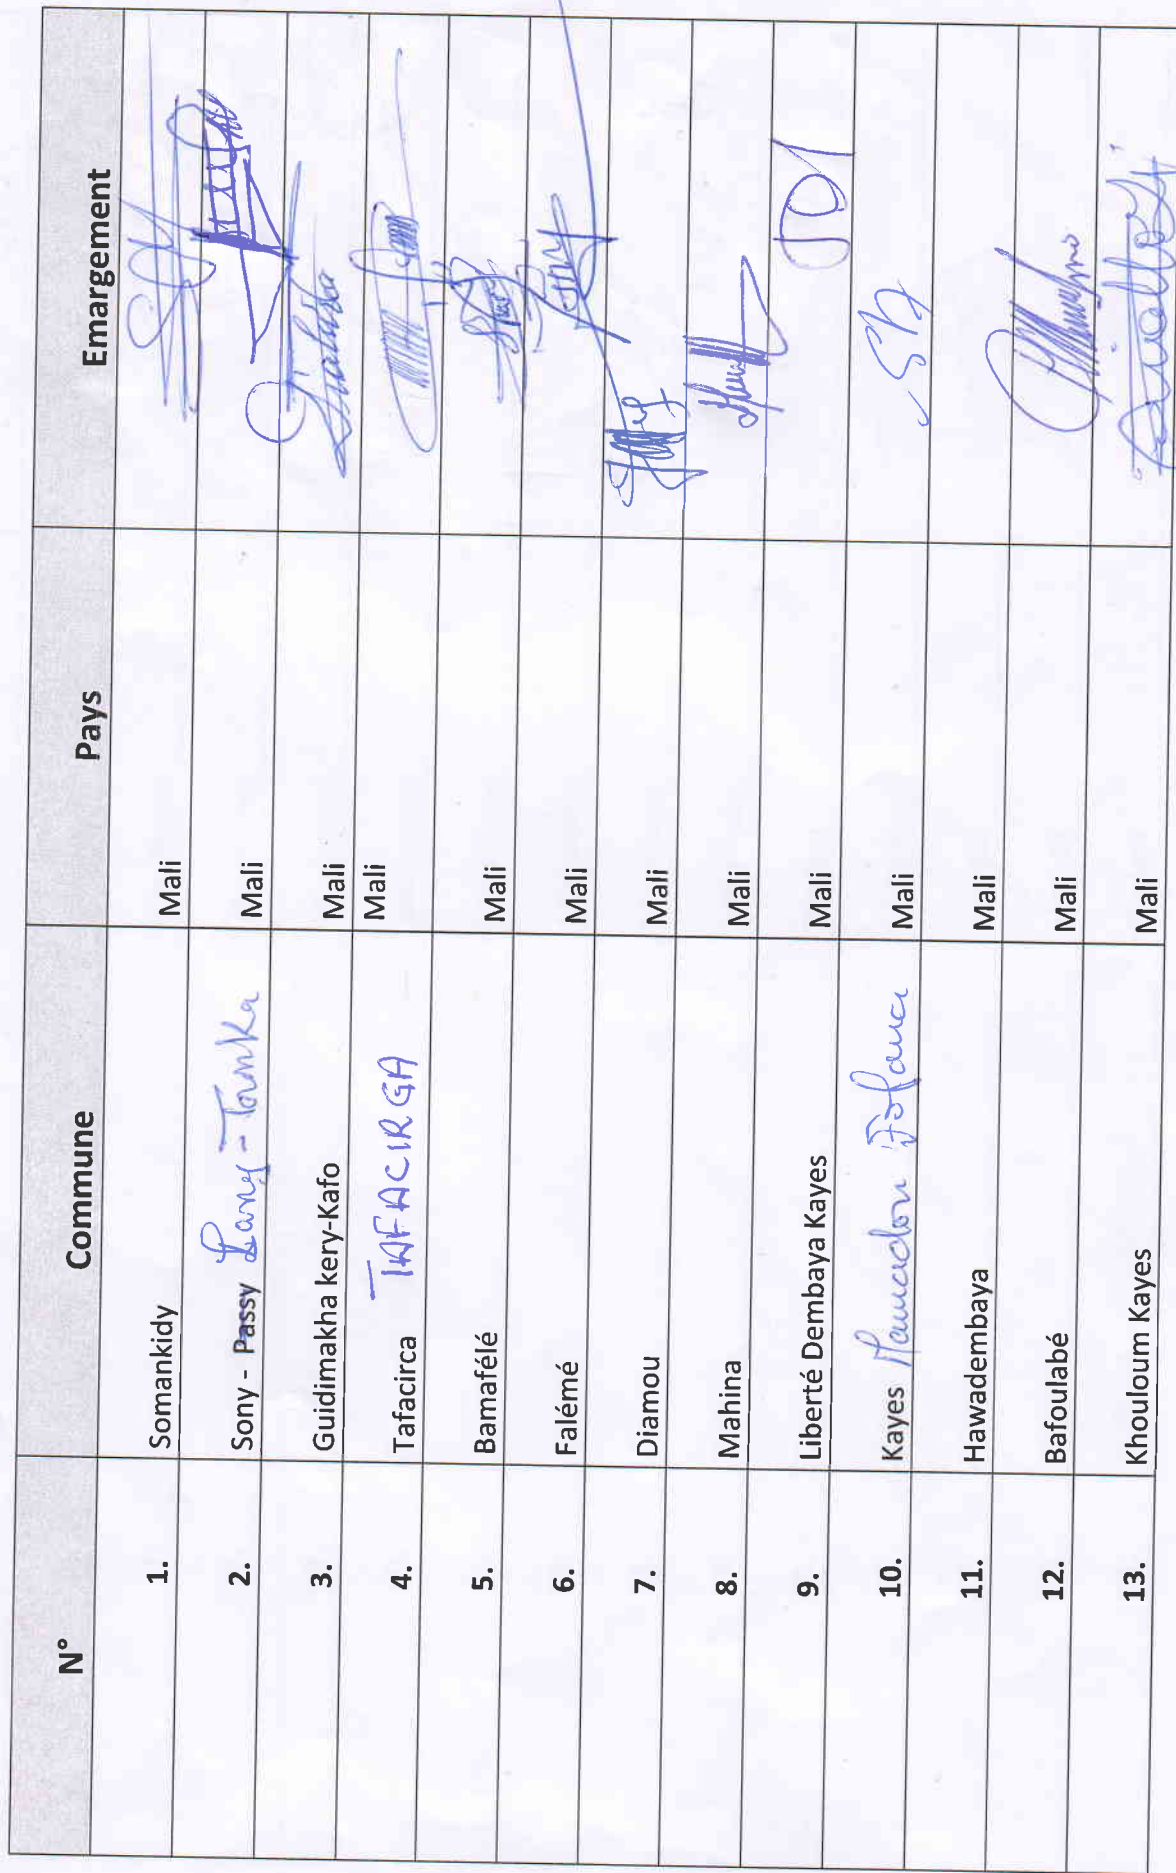 N° Commune Pays Emargement
1. Somankidy Mali
2. Sony - Passy Lany - Tounka Mali
3. Guidimakha kery-Kafo Mali
4. Tafacirca TAFACIRGA Mali
5. Bamafélé Mali
6. Falémé Mali
7. Diamou Mali
8. Mahina Mali
9. Liberté Dembaya Kayes Mali
10. Kayes Mamadou Fofana Mali
11. Hawadembaya Mali
12. Bafoulabé Mali
13. Khouloum Kayes Mali